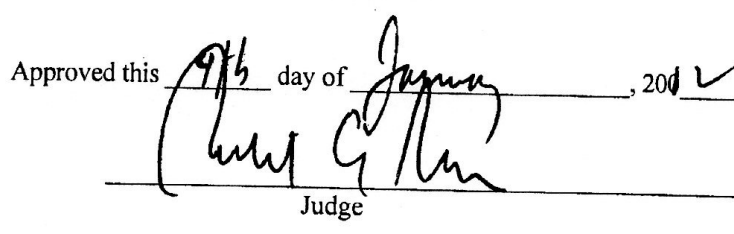 Approved this 9th day of January, 2012
Judge